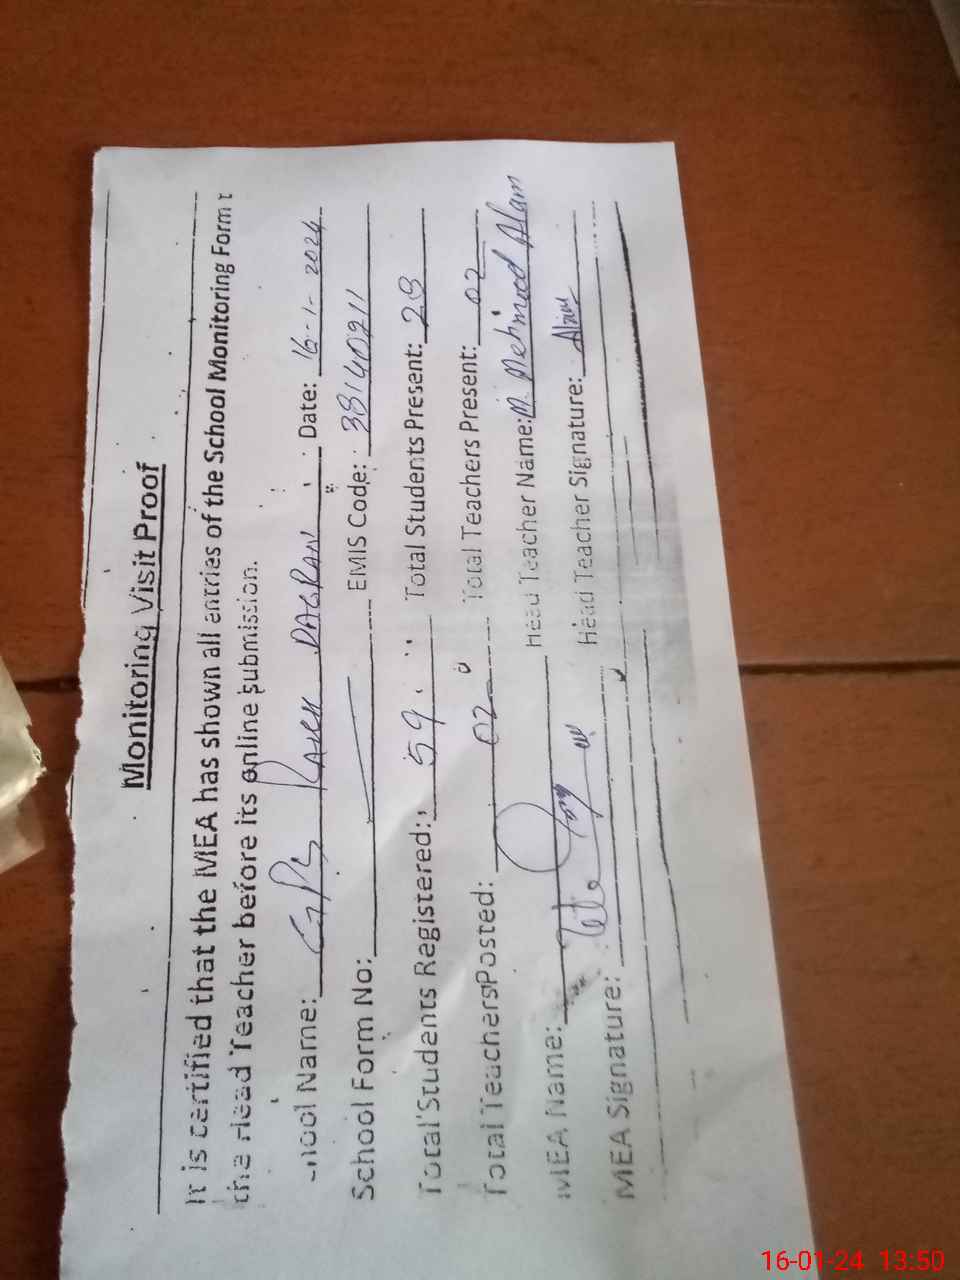 Monitoring Visit Proof
It is certified that the MEA has shown all entries of the School Monitoring Form t
the Head Teacher before its online submission.
School Name: GPS DAGRAN Date: 16-1-2024
School Form No: EMIS Code: 38140211
Total Students Registered: 59 Total Students Present: 28
Total Teachers Posted: 02 Total Teachers Present: 02
MEA Name: Head Teacher Name: M. Mehmood Alam
MEA Signature: Head Teacher Signature: Alam
16-01-24 13:50